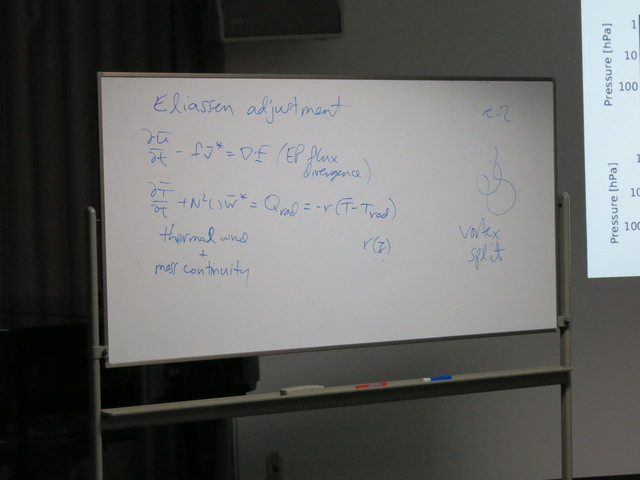 Eliassen adjustment
∂ū/∂t - f v̄* = ∇·F (EP flux
divergence)
∂T̄/∂t + N²( ) w̄* = Qrad = -r(T̄ - Trad)
thermal wind
+
mass continuity
r(z)
vortex
split
Pressure [hPa]
1
10
100
Pressure [hPa]
1
10
100